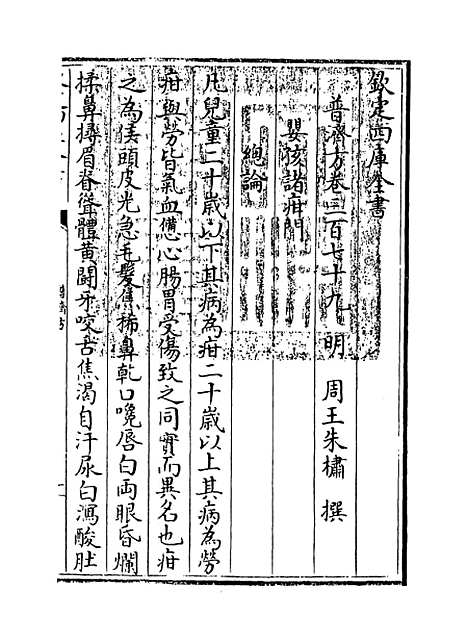 欽定四庫全書
普濟方卷三百七十九 明 周王朱橚 撰
嬰孩諸疳門
總論
凡兒童二十歲以下其病為疳二十歲以上其病為勞
疳與勞皆氣血憊心腸胃受傷致之同實而異名也疳
之為候頭皮光急毛髮焦稀鼻乾口唇白兩眼昏爛
揉鼻撏眉脊聳體黃鬬牙咬舌焦渴自汗尿白瀉酸肚